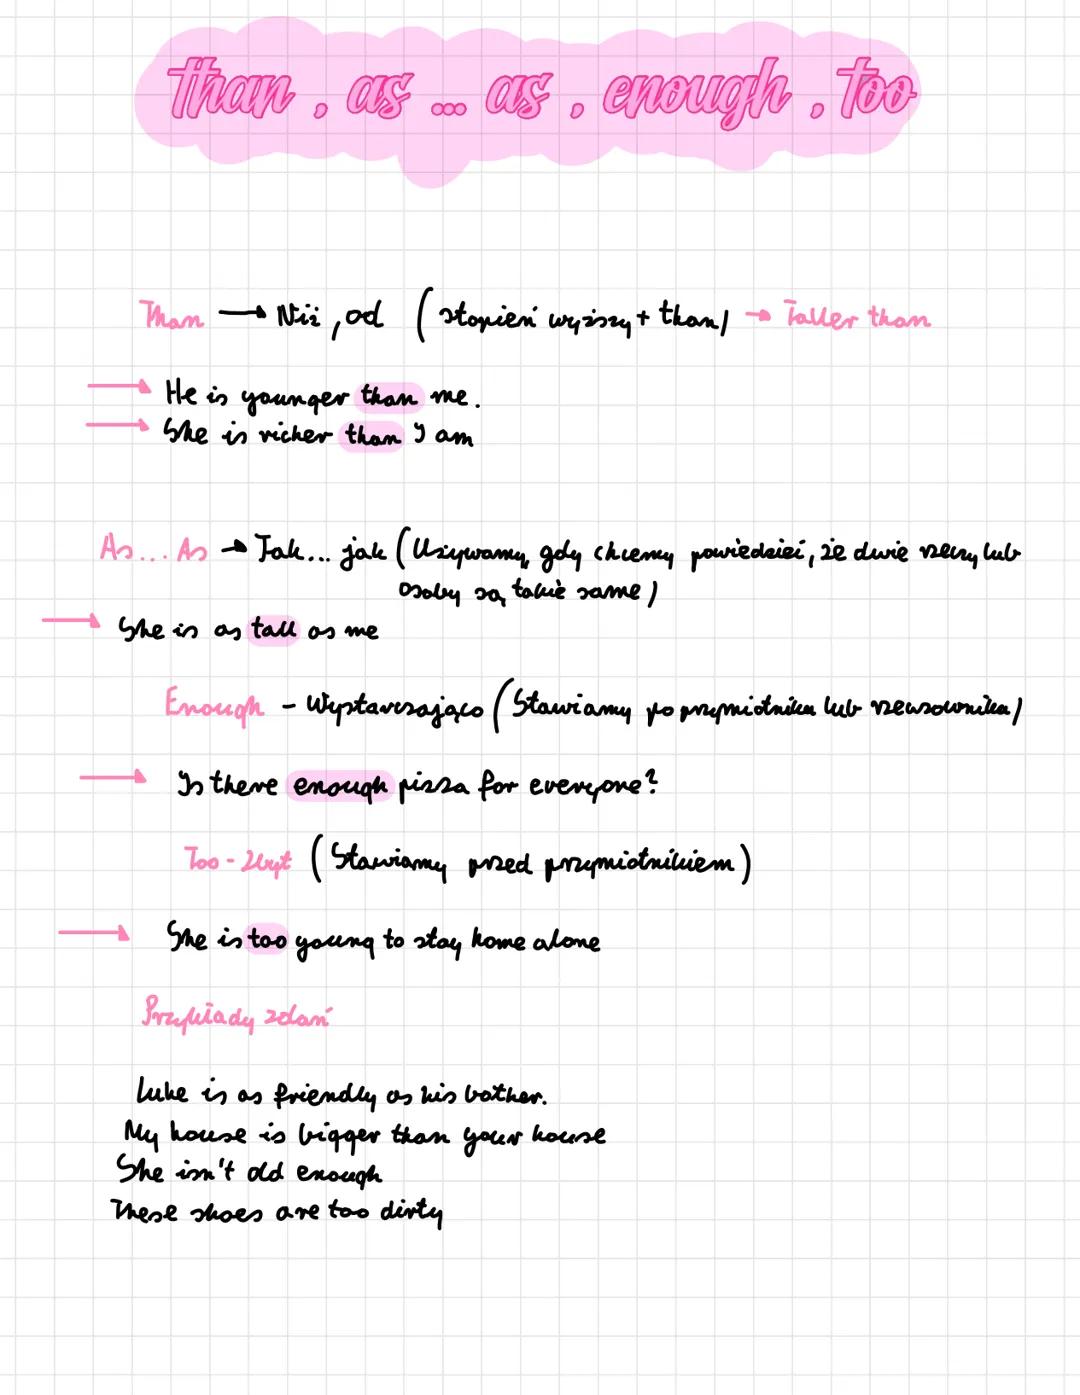 than , as ... as , enough , too
Than → Niż , od ( stopień wyższy + than ) → Taller than
→ He is younger than me .
→ She is richer than I am
As ... As → Tak ... jak ( Używamy, gdy chcemy powiedzieć, że dwie rzeczy lub
osoby są takie same )
→ She is as tall as me
Enough - Wystarczająco ( Stawiamy po przymiotniku lub rzeczowniku )
→ Is there enough pizza for everyone?
Too - Zbyt ( Stawiamy przed przymiotnikiem )
→ She is too young to stay home alone
Przykłady zdań
Luke is as friendly as his bother.
My house is bigger than your house
She isn't old enough
These shoes are too dirty